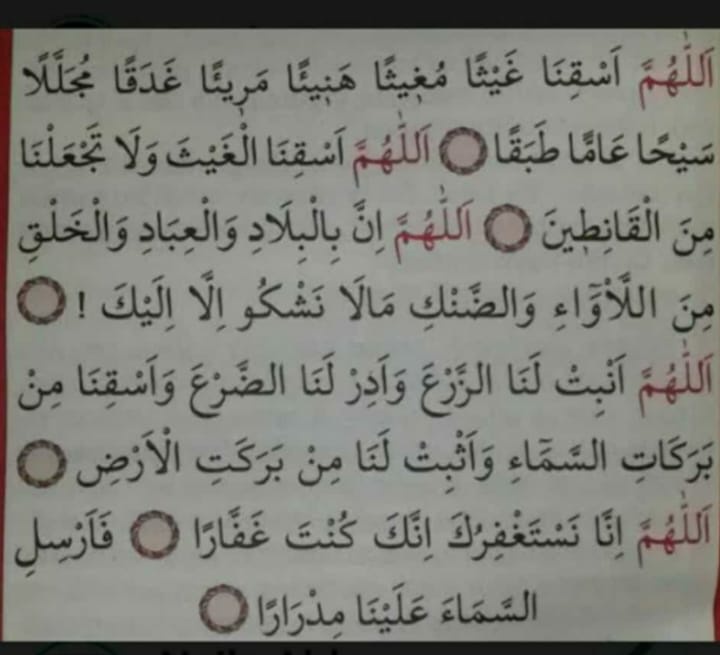 اَللّٰهُمَّ اَسْقِنَا غَيْثًا مُغِيثًا هَنِيئًا مَرِيئًا غَدَقًا مُجَلَّلًا
سَيْحًا عَامًّا طَبَقًا اَللّٰهُمَّ اَسْقِنَا الْغَيْثَ وَلَا تَجْعَلْنَا
مِنَ الْقَانِطِينَ اَللّٰهُمَّ اِنَّ بِالْبِلَادِ وَالْعِبَادِ وَالْخَلْقِ
مِنَ اللَّاْوَٓاءِ وَالضَّنْكِ مَالَا نَشْكُو اِلَّا اِلَيْكَ !
اَللّٰهُمَّ اَنْبِتْ لَنَا الزَّرْعَ وَاَدِرْ لَنَا الضَّرْعَ وَاَسْقِنَا مِنْ
بَرَكَاتِ السَّمَٓاءِ وَاَثْبِتْ لَنَا مِنْ بَرَكَتِ الْاَرْضِ
اَللّٰهُمَّ اِنَّا نَسْتَغْفِرُكَ اِنَّكَ كُنْتَ غَفَّارًا فَاَرْسِلِ
السَّمَاءَ عَلَيْنَا مِدْرَارًا